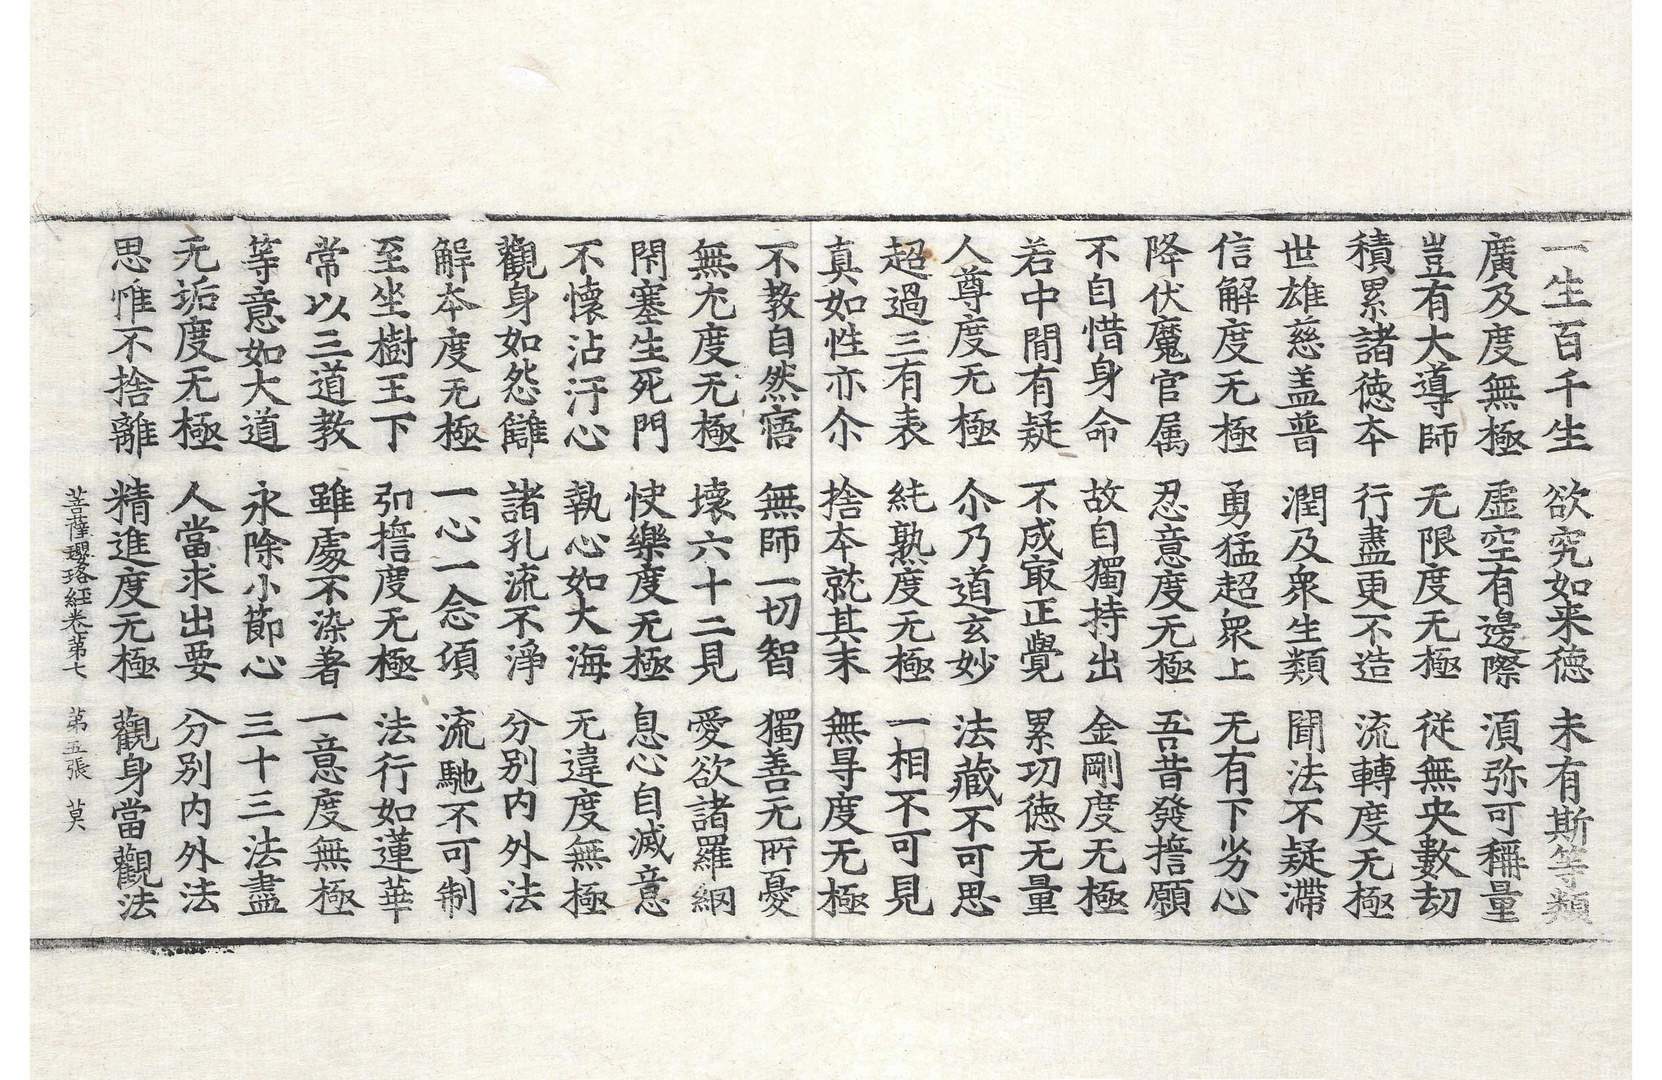 一生百千生　欲究如来德　未有斯等類
廣及度無極　虛空有邊際　湏弥可稱量
豈有大導師　无限度无極　從無央數劫
積累諸德本　行盡更不造　流轉度无極
世雄慈盖普　潤及衆生類　聞法不疑滯
信解度无極　勇猛超衆上　无有下劣心
降伏魔官属　忍意度无極　吾昔發擔願
不自惜身命　故自獨持出　金剛度无極
若中閒有疑　不成㝡正覺　累功德无量
人尊度无極　尒乃道玄妙　法藏不可思
超過三有表　純熟度无極　一相不可見
真如性亦尒　捨本就其末　無㝵度无極
不教自然寤　無師一切智　獨善无所憂
無尢度无極　壞六十二見　愛欲諸羅網
閇塞生死門　快樂度无極　息心自滅意
不懷沾汙心　執心如大海　无違度無極
觀身如怨讎　諸孔流不淨　分別内外法
解本度无極　一心一念湏　流馳不可制
至坐樹王下　弘擔度无極　法行如蓮華
常以三道教　雖處不染著　一意度無極
等意如大道　永除小節心　三十三法盡
无垢度无極　人當求出要　分別内外法
思惟不捨離　精進度无極　觀身當觀法
菩薩瓔珞經卷第七　第五張　莫